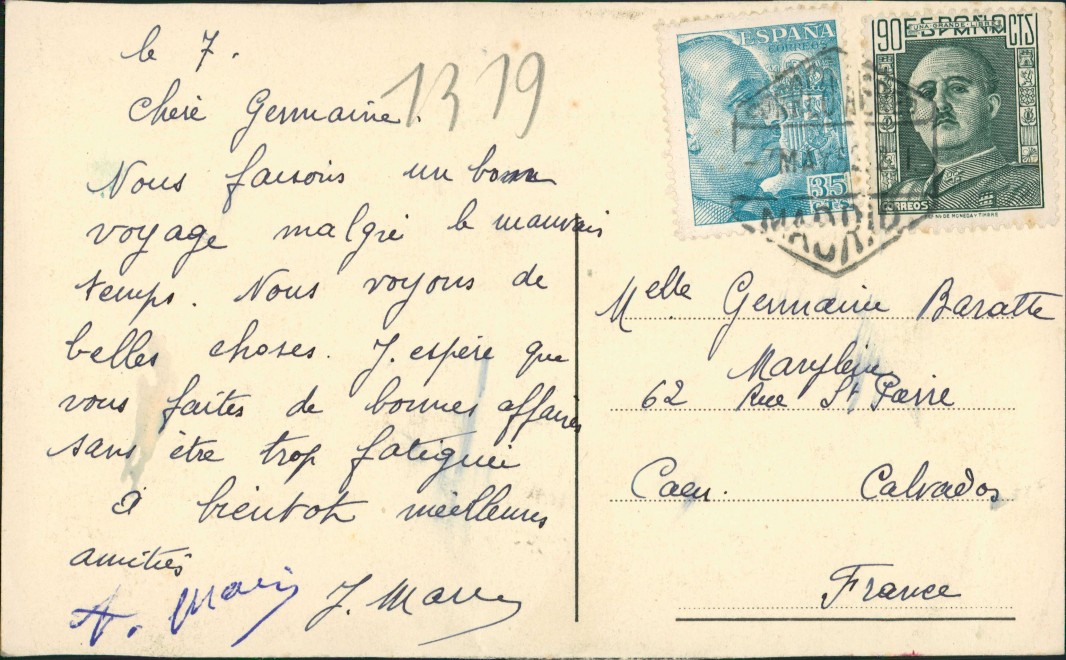 le 7.
Chère Germaine.
1319
Nous faisons un bon
voyage malgré le mauvais
temps. Nous voyons de
belles choses. J. espère que
vous faites de bonnes affaires
sans être trop fatiguée
à bientot meilleures
amitiés
ESPAÑA
CORREOS
35
CTS
90 ESPAÑA CTS
UNA GRANDE LIBRE
CORREOS
MAY
MADRID
Melle Germaine Baratte
62 Rue St Pierre
Caen. Calvados
France